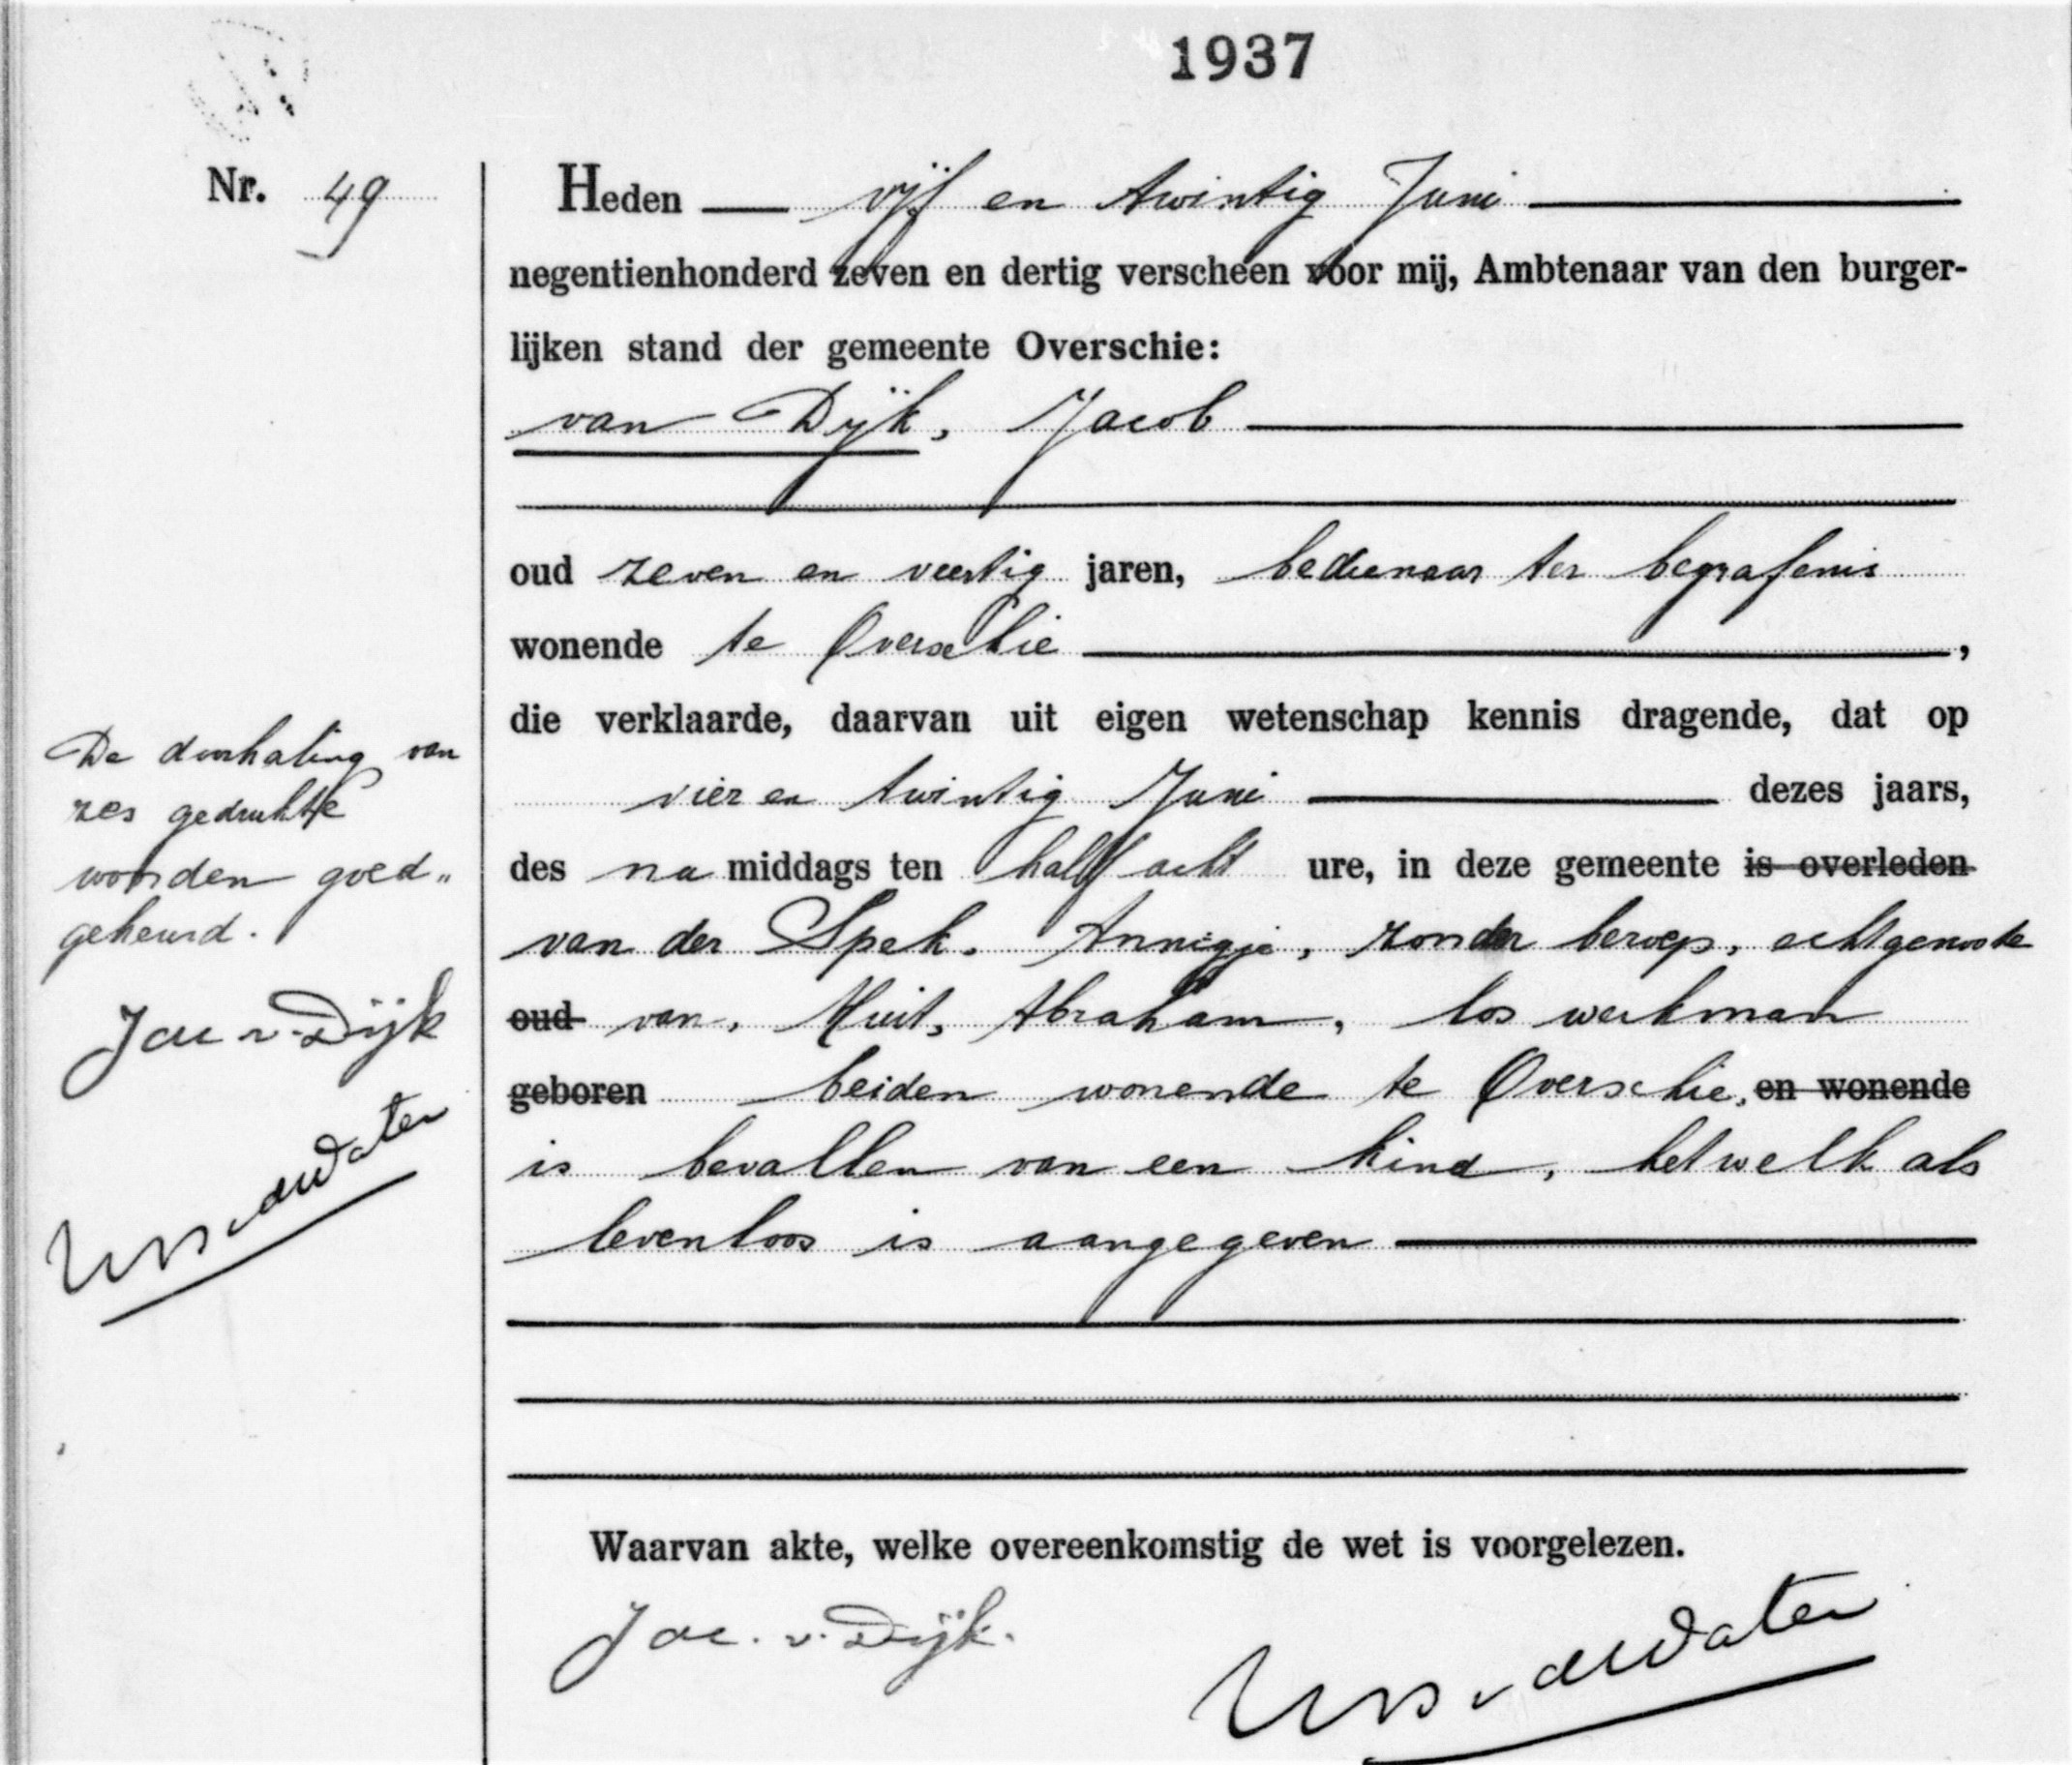 1937
Nr. 49
Heden vijf en twintig Juni
negentienhonderd zeven en dertig verscheen voor mij, Ambtenaar van den burger-
lijken stand der gemeente Overschie:
van Dijk, Jacob
oud zeven en veertig jaren, bedienaar ter begrafenis
wonende te Overschie,
die verklaarde, daarvan uit eigen wetenschap kennis dragende, dat op
vier en twintig Juni dezes jaars,
des na middags ten half acht ure, in deze gemeente is overleden
van der Spek, Annigje, zonder beroep, echtgenoote
oud van, Huit, Abraham, los werkman
geboren beiden wonende te Overschie, en wonende
is bevallen van een kind, hetwelk als
levenloos is aangegeven
De doorhaling van
zes gedrukte
woorden goed„
gekeurd.
Jac v. Dijk
Waarvan akte, welke overeenkomstig de wet is voorgelezen.
Jac. v. Dijk.